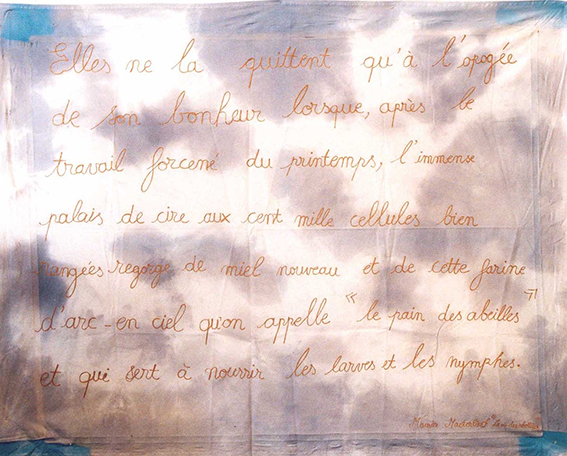 Elles ne la quittent qu'à l'apogée
de son bonheur lorsque, après le
travail forcené du printemps, l'immense
palais de cire aux cent mille cellules bien
rangées regorge de miel nouveau et de cette farine
d'arc-en ciel qu'on appelle "le pain des abeilles"
et qui sert à nourrir les larves et les nymphes.